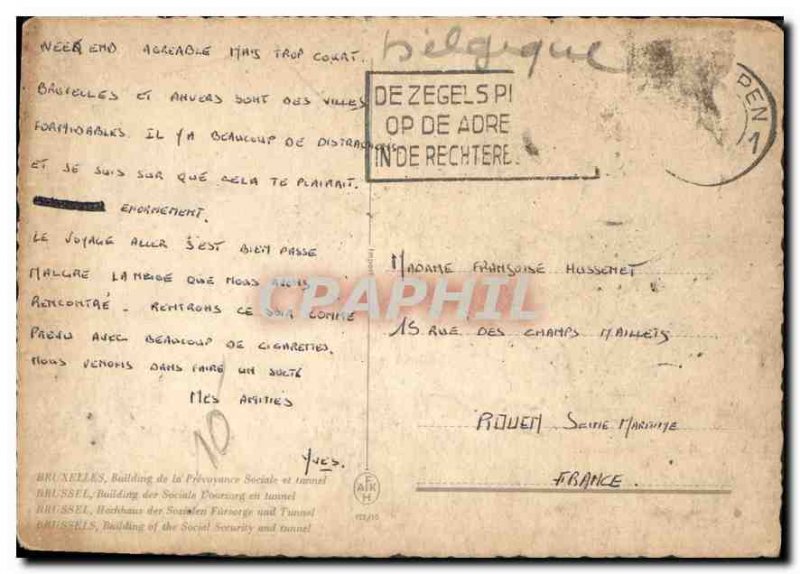 WEEK END AGREABLE MAIS TROP COURT.
BRUXELLES ET ANVERS SONT DES VILLES
FORMIDABLES. IL Y A BEAUCOUP DE DISTRACTIONS
ET JE SUIS SUR QUE CELA TE PLAIRAIT.
ENORMEMENT.
LE VOYAGE ALLER S'EST BIEN PASSE
MALGRE LA NEIGE QUE NOUS AVONS
RENCONTRÉ. RENTRONS CE SOIR COMME
PREVU AVEC BEAUCOUP DE CIGARETTES.
NOUS VENONS DANS FAIRE UN
MES AMITIES
YVES.
10
BRUXELLES, Building de la Prévoyance Sociale et tunnel
BRUSSEL, Building der Sociale Voorzorg en tunnel
BRUSSEL, Hochhaus der Sozialen Fürsorge und Tunnel
BRUSSELS, Building of the Social Security and tunnel
Belgique
DE ZEGELS PL
OP DE ADRE
IN DE RECHTERE
PEN
1
MADAME FRANÇOISE HUSSENET
15 RUE DES CHAMPS MAILLETS
ROUEN SEINE MARITIME
FRANCE.
CPARPHIL